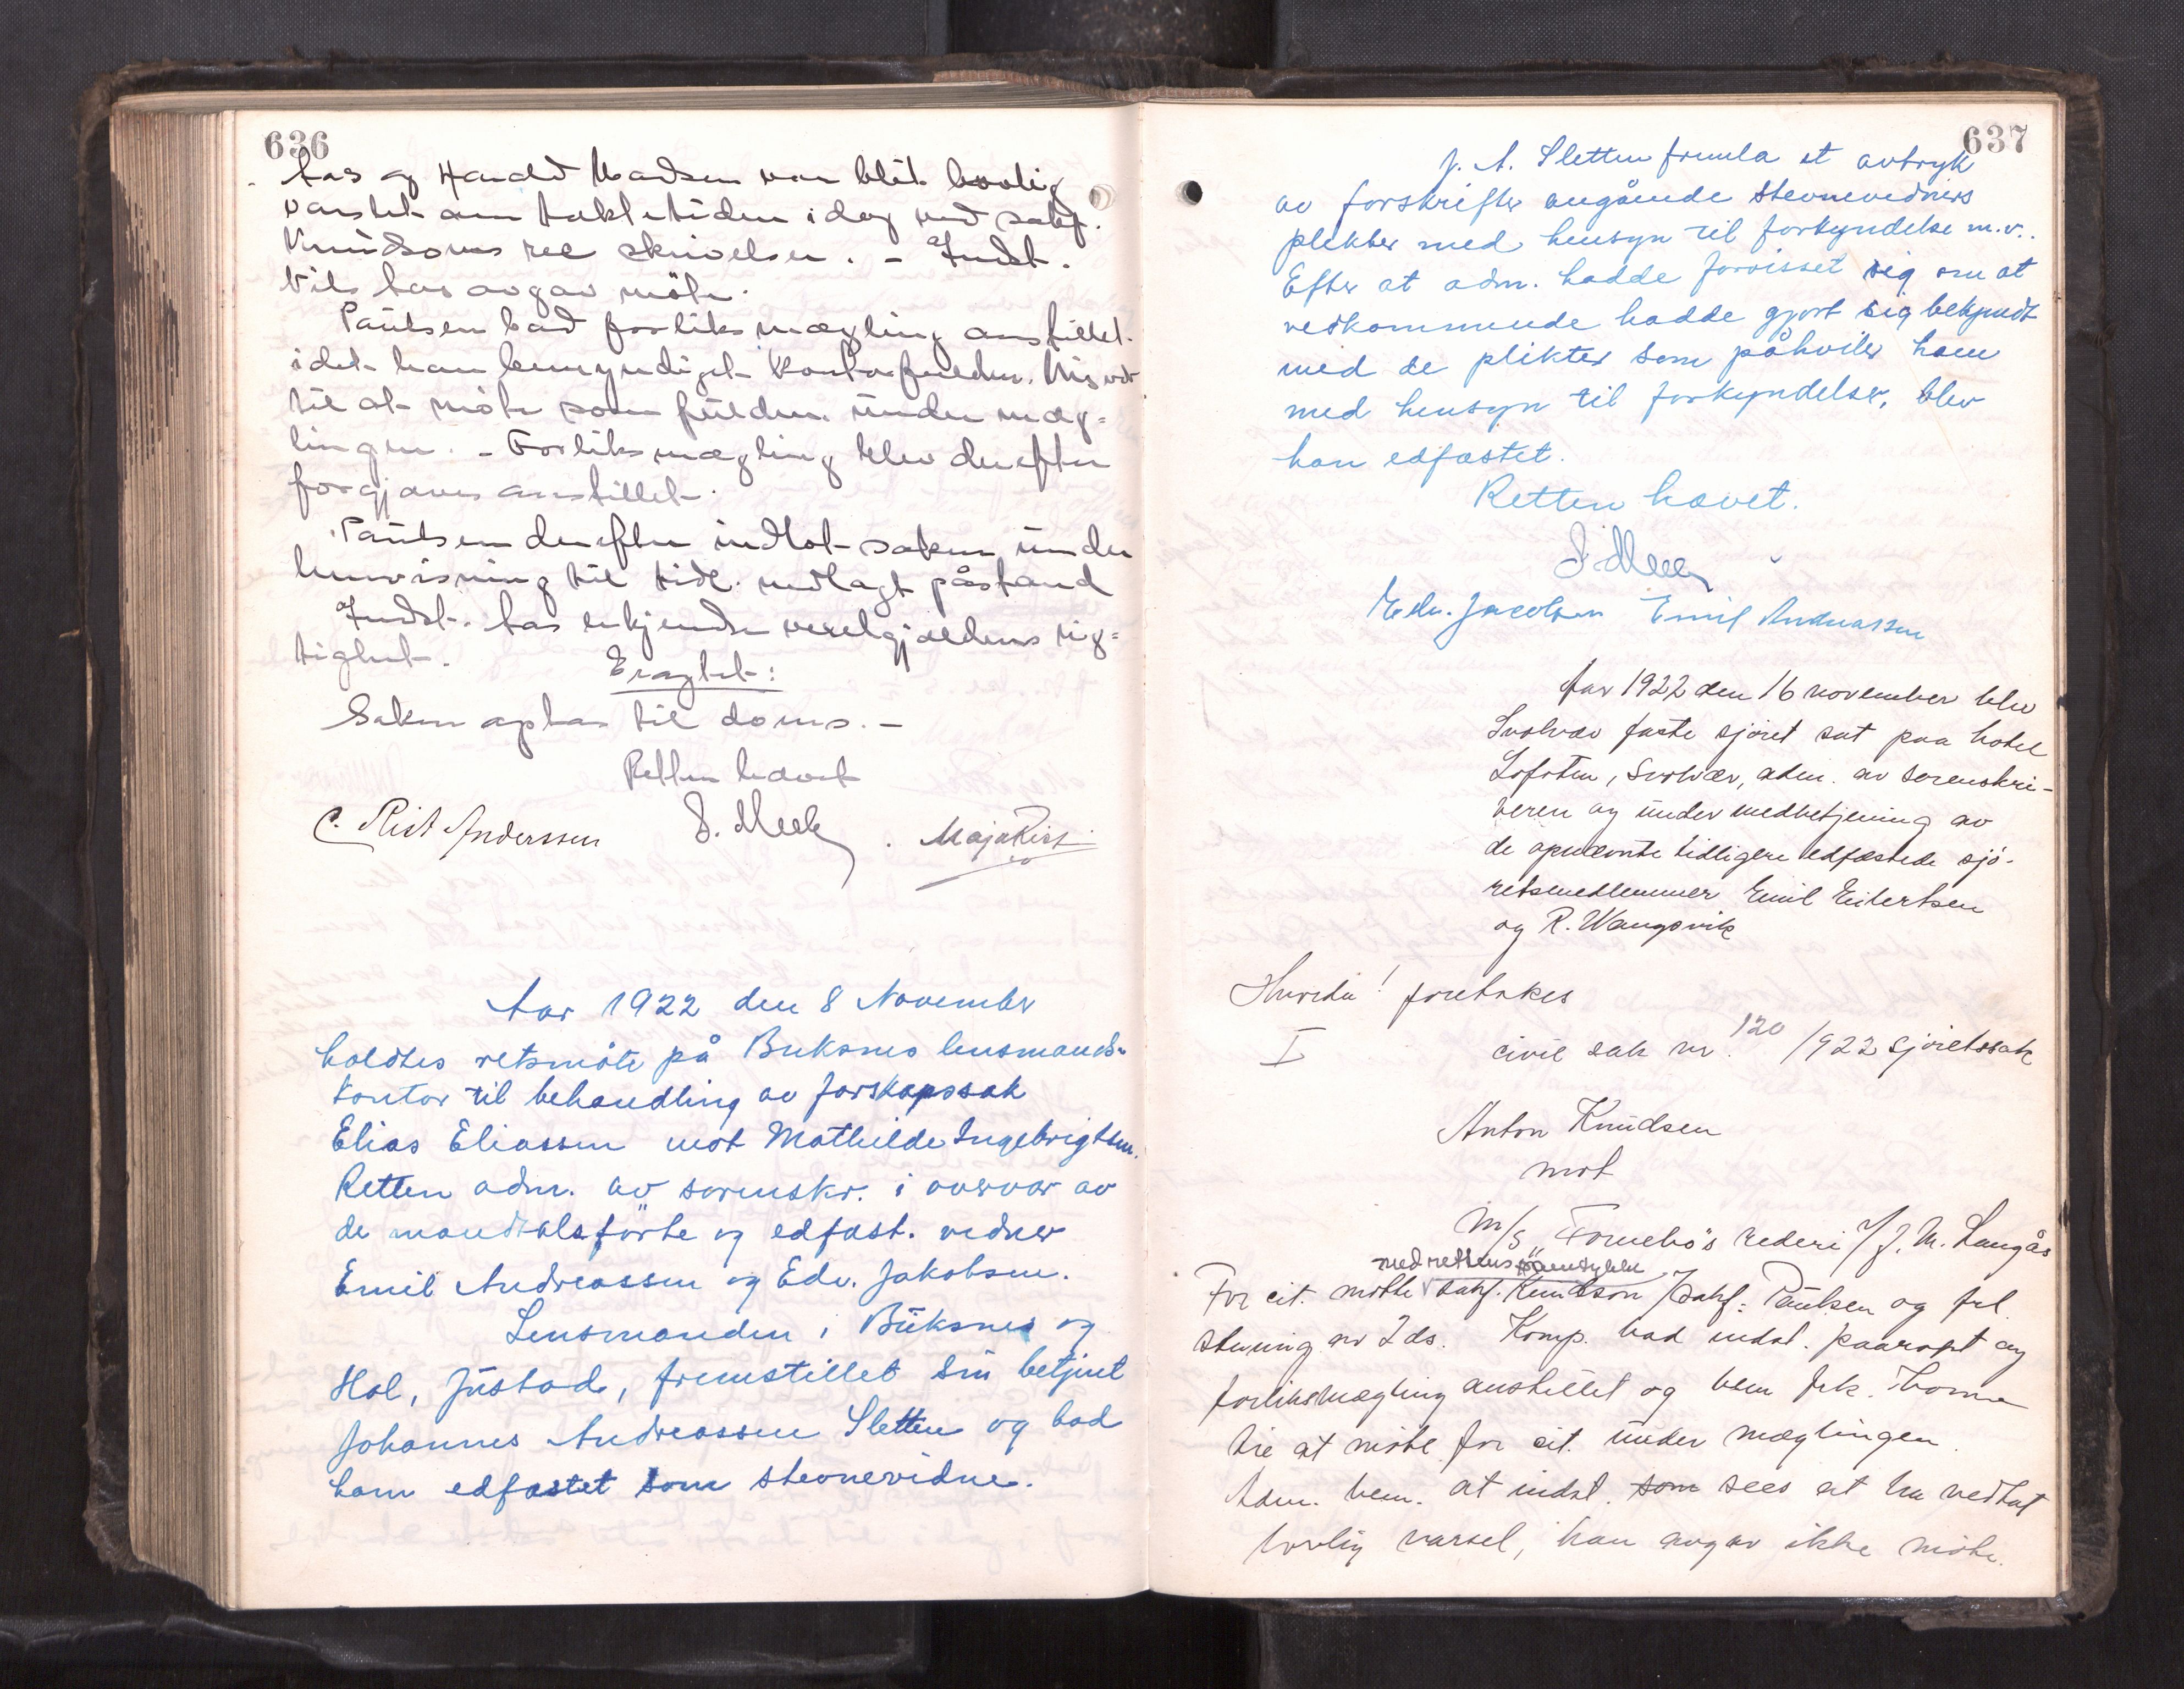 636
Aas og Harald Madsen var blit lovlig
varslet om taktetiden idag ved sakf.
Knudsons rec skrivelser. - Indst.
Nils Aas avgav møte.
Paulsen bad forliksmægling anstillet.
idet han bemyndiget kontorfuldm.
til at møte som fuldm. under mæg=
lingen. - Forliksmægling blev derefter
forgjæves anstillet.
Paulsen derefter indlot saken under
henvisning til tidl. nedlagt påstand
Indst. Aas erkjendte vexelgjældens rig=
tighet.
Eragtet:
Saken optas til doms. -
Retten hævet
C. Rist Anderssen
Maja Rist
Aar 1922 den 8 November
holdtes retsmöte på Buksnes lensmands-
kontor til behandling av farskapssak
Elias Eliassen mot Mathilde Ingebrigtsen.
Retten adm. av sorenskr. i overvær av
de mandtalsförte og edfæst. vidner
Emil Andreassen og Edv. Jakobsen.
Lensmanden i Buksnes og
Hol, Jüstad, fremstillet sin betjent
Johannes Andreassen Sletten og bad
ham edfæstet som stevnevidne.
637
J. A. Sletten fremla et avtryk
av forskrifter angående stevnevidners
plikter med hensyn til forkyndelse m.v..
Efter at adm. hadde forvisset sig om at
vedkommende hadde gjort sig bekjendt
med de plikter som påhviler ham
med hensyn til forkyndelser, blev
han edfæstet.
Retten hævet.
Edv. Jacobsen Emil Andreassen
Aar 1922 den 16 november blev
Svolvær faste sjöret sat paa hotel
Lofoten, Svolvær, adm. av sorenskri-
veren og under medbetjening av
de opnævnte tidligere edfæstede sjö-
retsmedlemmer Emil Eilertsen
og R. Wangsvik
Hvorda! foretakes
I civil sak nr. 120/1922 sjöretssak
Anton Knudsen
mot
M/S "Fornebo"s rederi v/ J. M. Langås
med rettens samtykke
For cit. mötte sakf. Knudson f/ sakf. Paulsen og frl.
stevning av 2 ds. Komp. bad indst. paaropt og
forliksmægling anstillet og bem frk. Thorne
til at möte for cit. under mæglingen.
Adm. bem. at indst. som sees at ha vedtat
lovlig varsel, han avgav ikke möte.